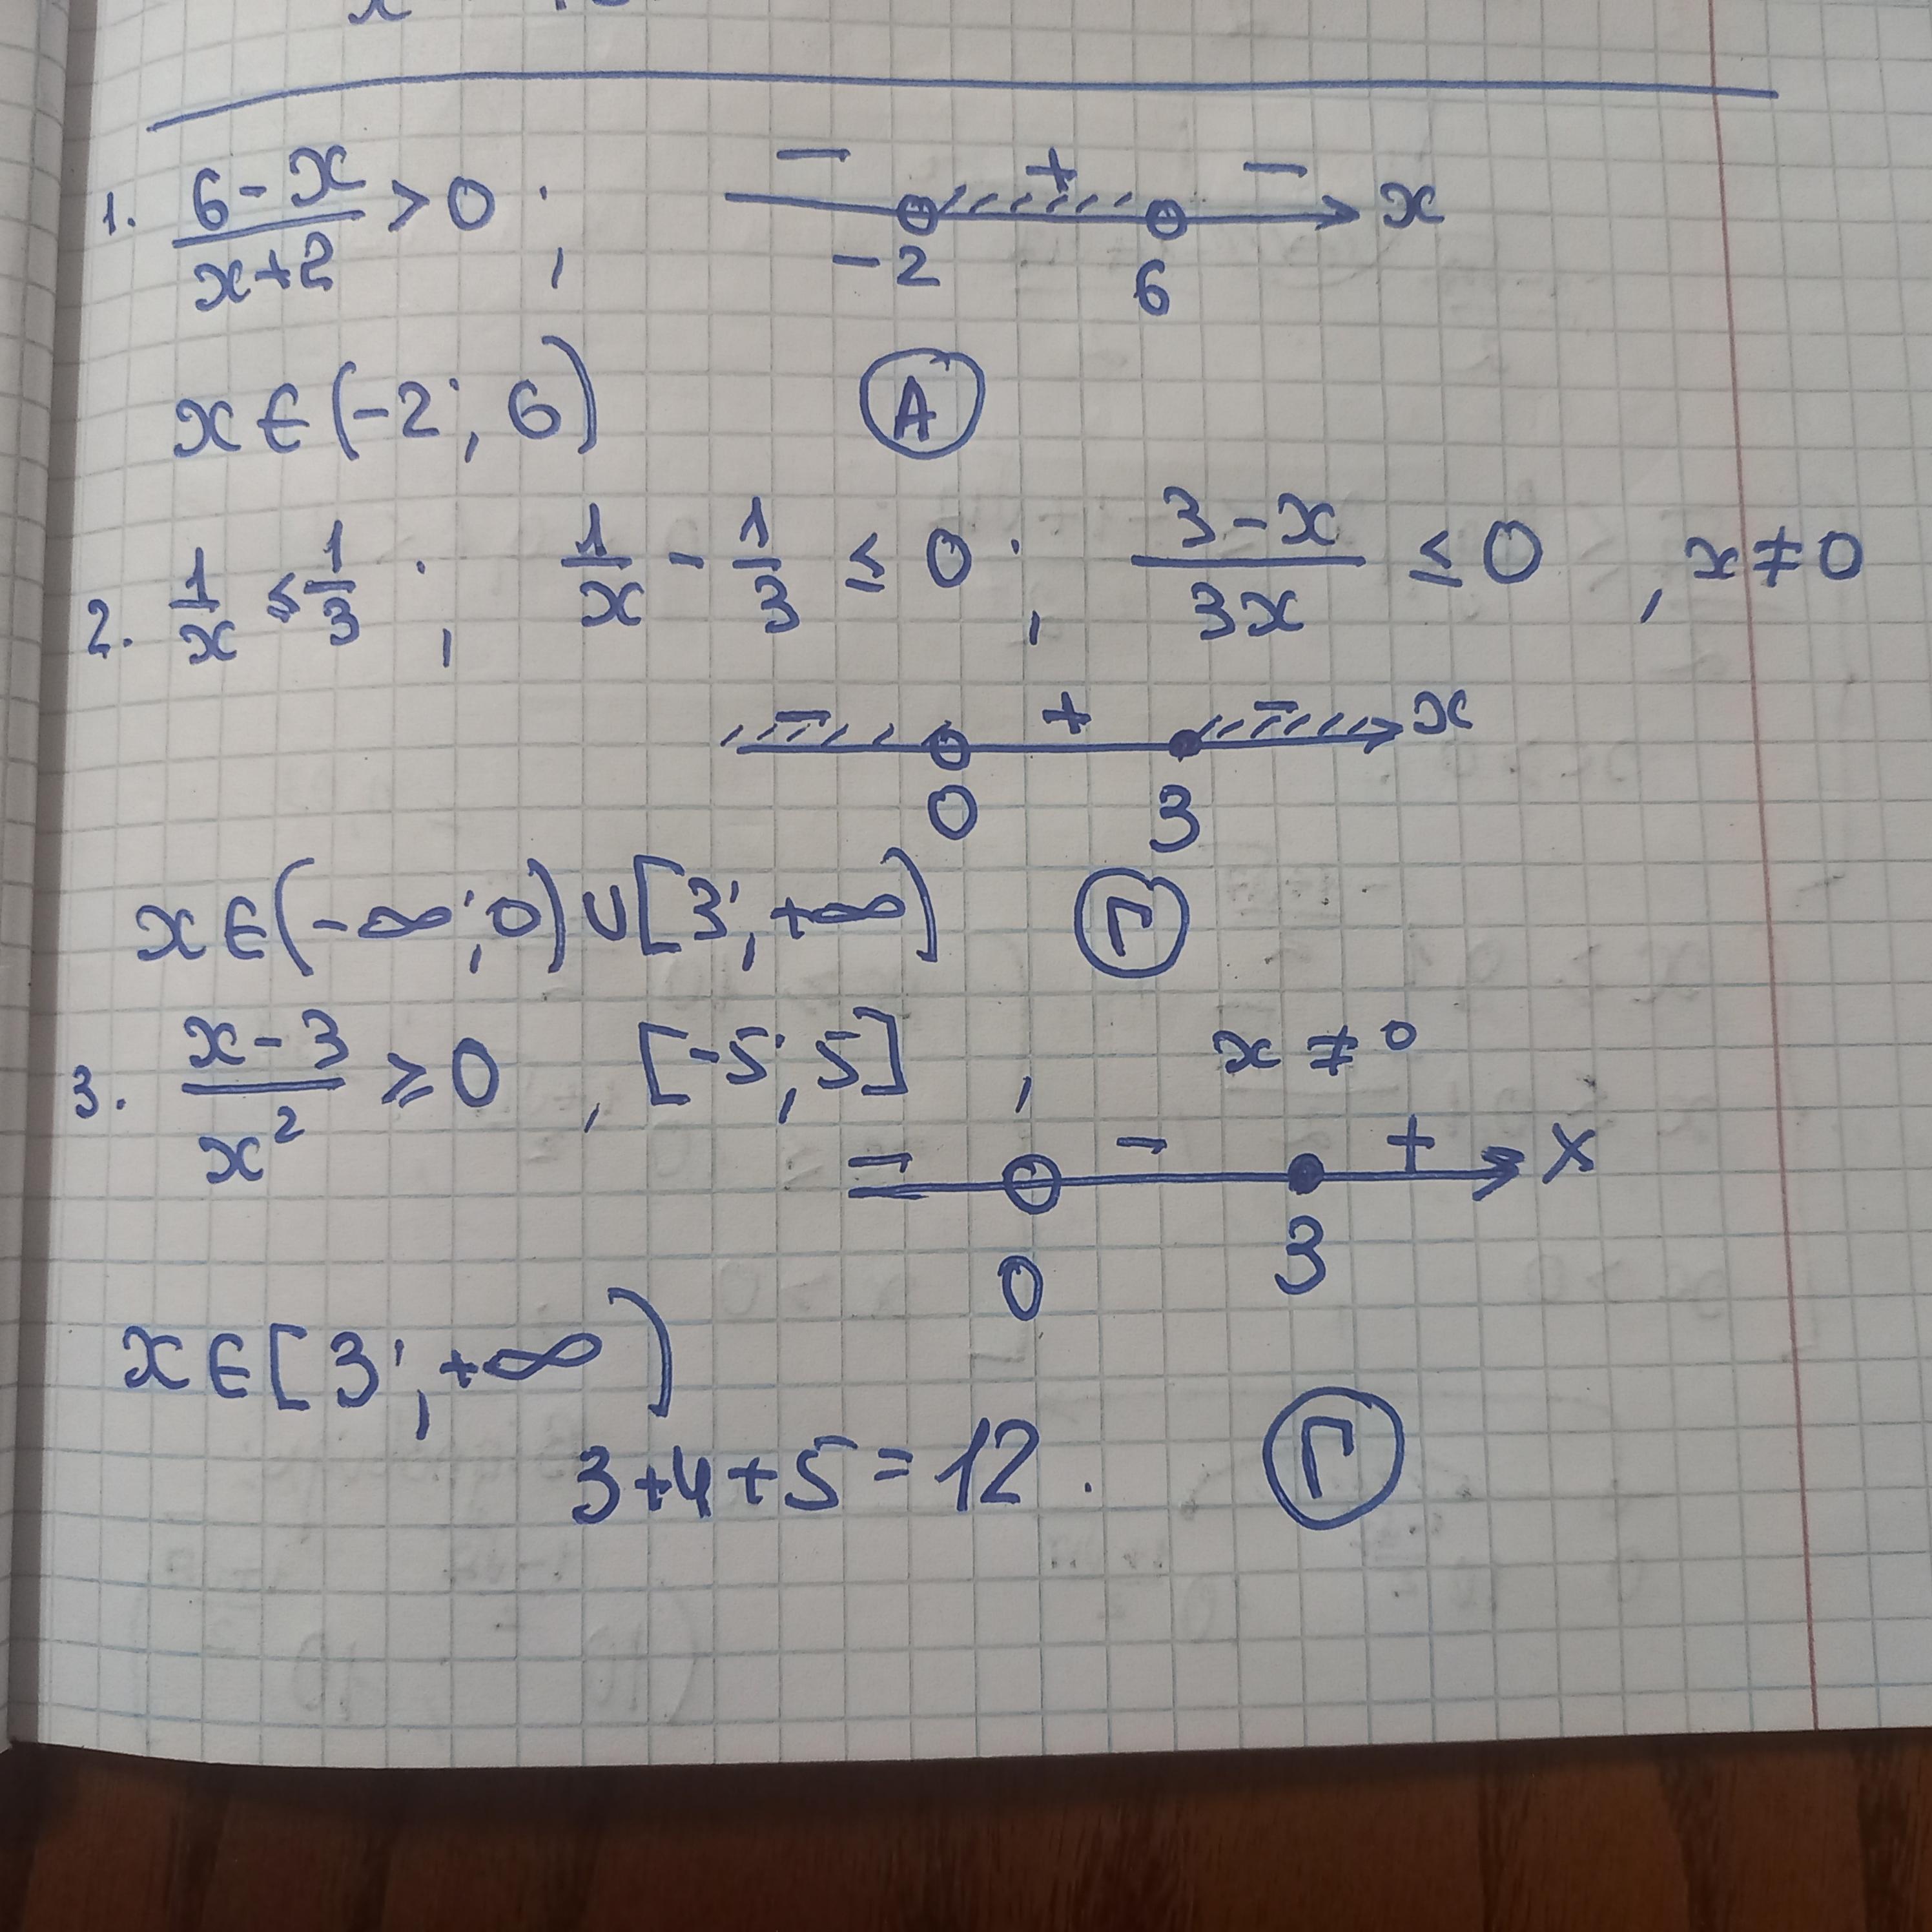 1. (6-x)/(x+2) > 0 ; - + - x
-2 6
x∈(-2; 6) А
2. 1/x ≤ 1/3 ; 1/x - 1/3 ≤ 0 ; (3-x)/(3x) ≤ 0 , x≠0
- + - x
0 3
x∈(-∞;0)∪[3;+∞) Г
3. (x-3)/x² ≥ 0 , [-5;5] , x≠0
- - + x
0 3
x∈[3;+∞)
3+4+5=12. Г